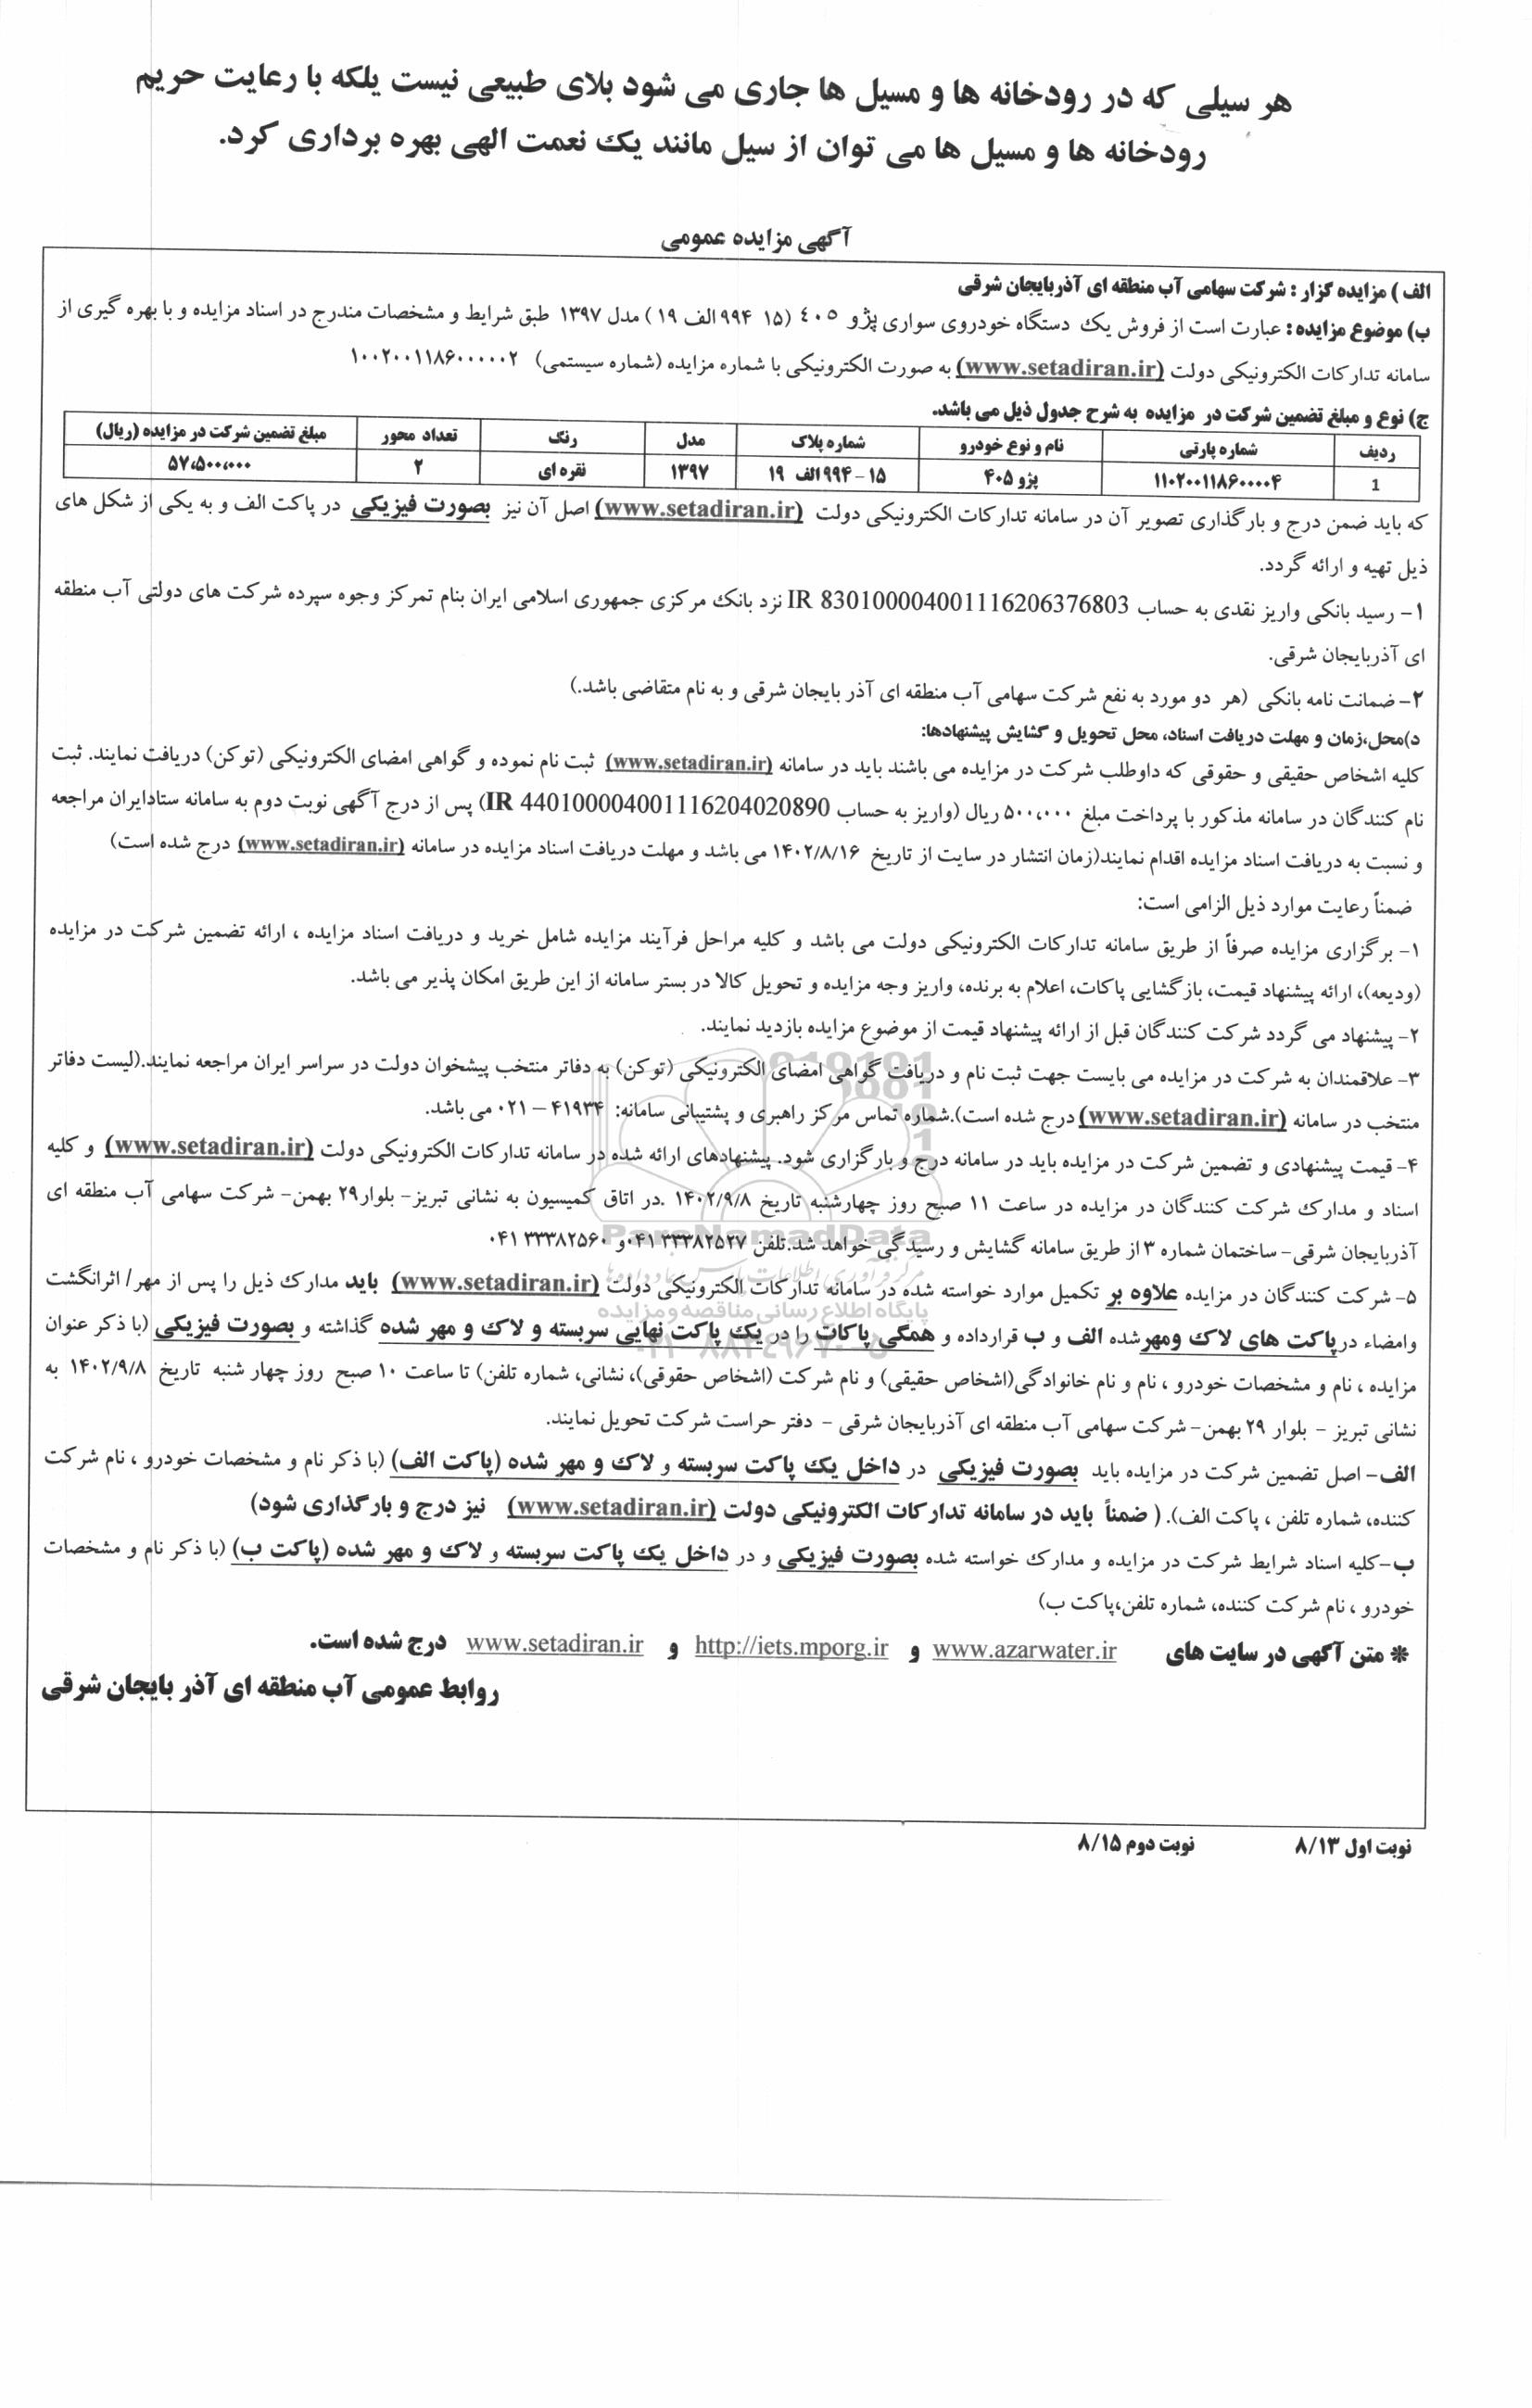 هر سیلی که در رودخانه ها و مسیل ها جاری می شود بلای طبیعی نیست یلکه با رعایت حریم
رودخانه ها و مسیل ها می توان از سیل مانند یک نعمت الهی بهره برداری کرد.
آگهی مزایده عمومی
الف ) مزایده گزار : شرکت سهامی آب منطقه ای آذربایجان شرقی
ب) موضوع مزایده : عبارت است از فروش یک دستگاه خودروی سواری پژو ۴۰۵ (۱۵ ۹۹۴ الف ۱۹ ) مدل ۱۳۹۷ طبق شرایط و مشخصات مندرج در اسناد مزایده و با بهره گیری از
سامانه تدارکات الکترونیکی دولت (www.setadiran.ir) به صورت الکترونیکی با شماره مزایده (شماره سیستمی) ۱۰۰۲۰۰۱۱۸۶۰۰۰۰۰۲
ج) نوع و مبلغ تضمین شرکت در مزایده به شرح جدول ذیل می باشد.
ردیف شماره پارتی نام و نوع خودرو شماره پلاک مدل رنگ تعداد محور مبلغ تضمین شرکت در مزایده (ریال)
1 ۱۱۰۲۰۰۱۱۸۶۰۰۰۰۴ پژو ۴۰۵ ۱۵ – ۹۹۴ الف ۱۹ ۱۳۹۷ نقره ای ۲ ۵۷،۵۰۰،۰۰۰
که باید ضمن درج و بارگذاری تصویر آن در سامانه تدارکات الکترونیکی دولت (www.setadiran.ir) اصل آن نیز بصورت فیزیکی در پاکت الف و به یکی از شکل های
ذیل تهیه و ارائه گردد.
۱- رسید بانکی واریز نقدی به حساب IR 830100004001116206376803 نزد بانک مرکزی جمهوری اسلامی ایران بنام تمرکز وجوه سپرده شرکت های دولتی آب منطقه
ای آذربایجان شرقی.
۲- ضمانت نامه بانکی (هر دو مورد به نفع شرکت سهامی آب منطقه ای آذر بایجان شرقی و به نام متقاضی باشد.)
د)محل،زمان و مهلت دریافت اسناد، محل تحویل و گشایش پیشنهادها:
کلیه اشخاص حقیقی و حقوقی که داوطلب شرکت در مزایده می باشند باید در سامانه (www.setadiran.ir) ثبت نام نموده و گواهی امضای الکترونیکی (توکن) دریافت نمایند. ثبت
نام کنندگان در سامانه مذکور با پرداخت مبلغ ۵۰۰،۰۰۰ ریال (واریز به حساب IR 440100004001116204020890) پس از درج آگهی نوبت دوم به سامانه ستادایران مراجعه
و نسبت به دریافت اسناد مزایده اقدام نمایند(زمان انتشار در سایت از تاریخ ۱۴۰۲/۸/۱۶ می باشد و مهلت دریافت اسناد مزایده در سامانه (www.setadiran.ir) درج شده است)
ضمناً رعایت موارد ذیل الزامی است:
۱- برگزاری مزایده صرفاً از طریق سامانه تدارکات الکترونیکی دولت می باشد و کلیه مراحل فرآیند مزایده شامل خرید و دریافت اسناد مزایده ، ارائه تضمین شرکت در مزایده
(ودیعه)، ارائه پیشنهاد قیمت، بازگشایی پاکات، اعلام به برنده، واریز وجه مزایده و تحویل کالا در بستر سامانه از این طریق امکان پذیر می باشد.
۲- پیشنهاد می گردد شرکت کنندگان قبل از ارائه پیشنهاد قیمت از موضوع مزایده بازدید نمایند.
۳- علاقمندان به شرکت در مزایده می بایست جهت ثبت نام و دریافت گواهی امضای الکترونیکی (توکن) به دفاتر منتخب پیشخوان دولت در سراسر ایران مراجعه نمایند.(لیست دفاتر
منتخب در سامانه (www.setadiran.ir) درج شده است).شماره تماس مرکز راهبری و پشتیبانی سامانه: ۴۱۹۳۴ – ۰۲۱ می باشد.
۴- قیمت پیشنهادی و تضمین شرکت در مزایده باید در سامانه درج و بارگزاری شود. پیشنهادهای ارائه شده در سامانه تدارکات الکترونیکی دولت (www.setadiran.ir) و کلیه
اسناد و مدارک شرکت کنندگان در مزایده در ساعت ۱۱ صبح روز چهارشنبه تاریخ ۱۴۰۲/۹/۸ .در اتاق کمیسیون به نشانی تبریز- بلوار۲۹ بهمن- شرکت سهامی آب منطقه ای
آذربایجان شرقی- ساختمان شماره ۳ از طریق سامانه گشایش و رسیدگی خواهد شد.تلفن ۳۳۳۸۲۵۲۷ ۰۴۱ و ۳۳۳۸۲۵۶۰ ۰۴۱
۵- شرکت کنندگان در مزایده علاوه بر تکمیل موارد خواسته شده در سامانه تدارکات الکترونیکی دولت (www.setadiran.ir) باید مدارک ذیل را پس از مهر/ اثرانگشت
وامضاء درپاکت های لاک ومهرشده الف و ب قرارداده و همگی پاکات را در یک پاکت نهایی سربسته و لاک و مهر شده گذاشته و بصورت فیزیکی (با ذکر عنوان
مزایده ، نام و مشخصات خودرو ، نام و نام خانوادگی(اشخاص حقیقی) و نام شرکت (اشخاص حقوقی)، نشانی، شماره تلفن) تا ساعت ۱۰ صبح روز چهار شنبه تاریخ ۱۴۰۲/۹/۸ به
نشانی تبریز – بلوار ۲۹ بهمن- شرکت سهامی آب منطقه ای آذربایجان شرقی – دفتر حراست شرکت تحویل نمایند.
الف- اصل تضمین شرکت در مزایده باید بصورت فیزیکی در داخل یک پاکت سربسته و لاک و مهر شده (پاکت الف) (با ذکر نام و مشخصات خودرو ، نام شرکت
کننده، شماره تلفن ، پاکت الف). ( ضمناً باید در سامانه تدارکات الکترونیکی دولت (www.setadiran.ir) نیز درج و بارگذاری شود)
ب-کلیه اسناد شرایط شرکت در مزایده و مدارک خواسته شده بصورت فیزیکی و در داخل یک پاکت سربسته و لاک و مهر شده (پاکت ب) (با ذکر نام و مشخصات
خودرو ، نام شرکت کننده، شماره تلفن،پاکت ب)
* متن آگهی در سایت های www.azarwater.ir و http://iets.mporg.ir و www.setadiran.ir درج شده است.
روابط عمومی آب منطقه ای آذر بایجان شرقی
نوبت اول ۸/۱۳ نوبت دوم ۸/۱۵
ParsNamadData
پایگاه اطلاع رسانی مناقصه و مزایده